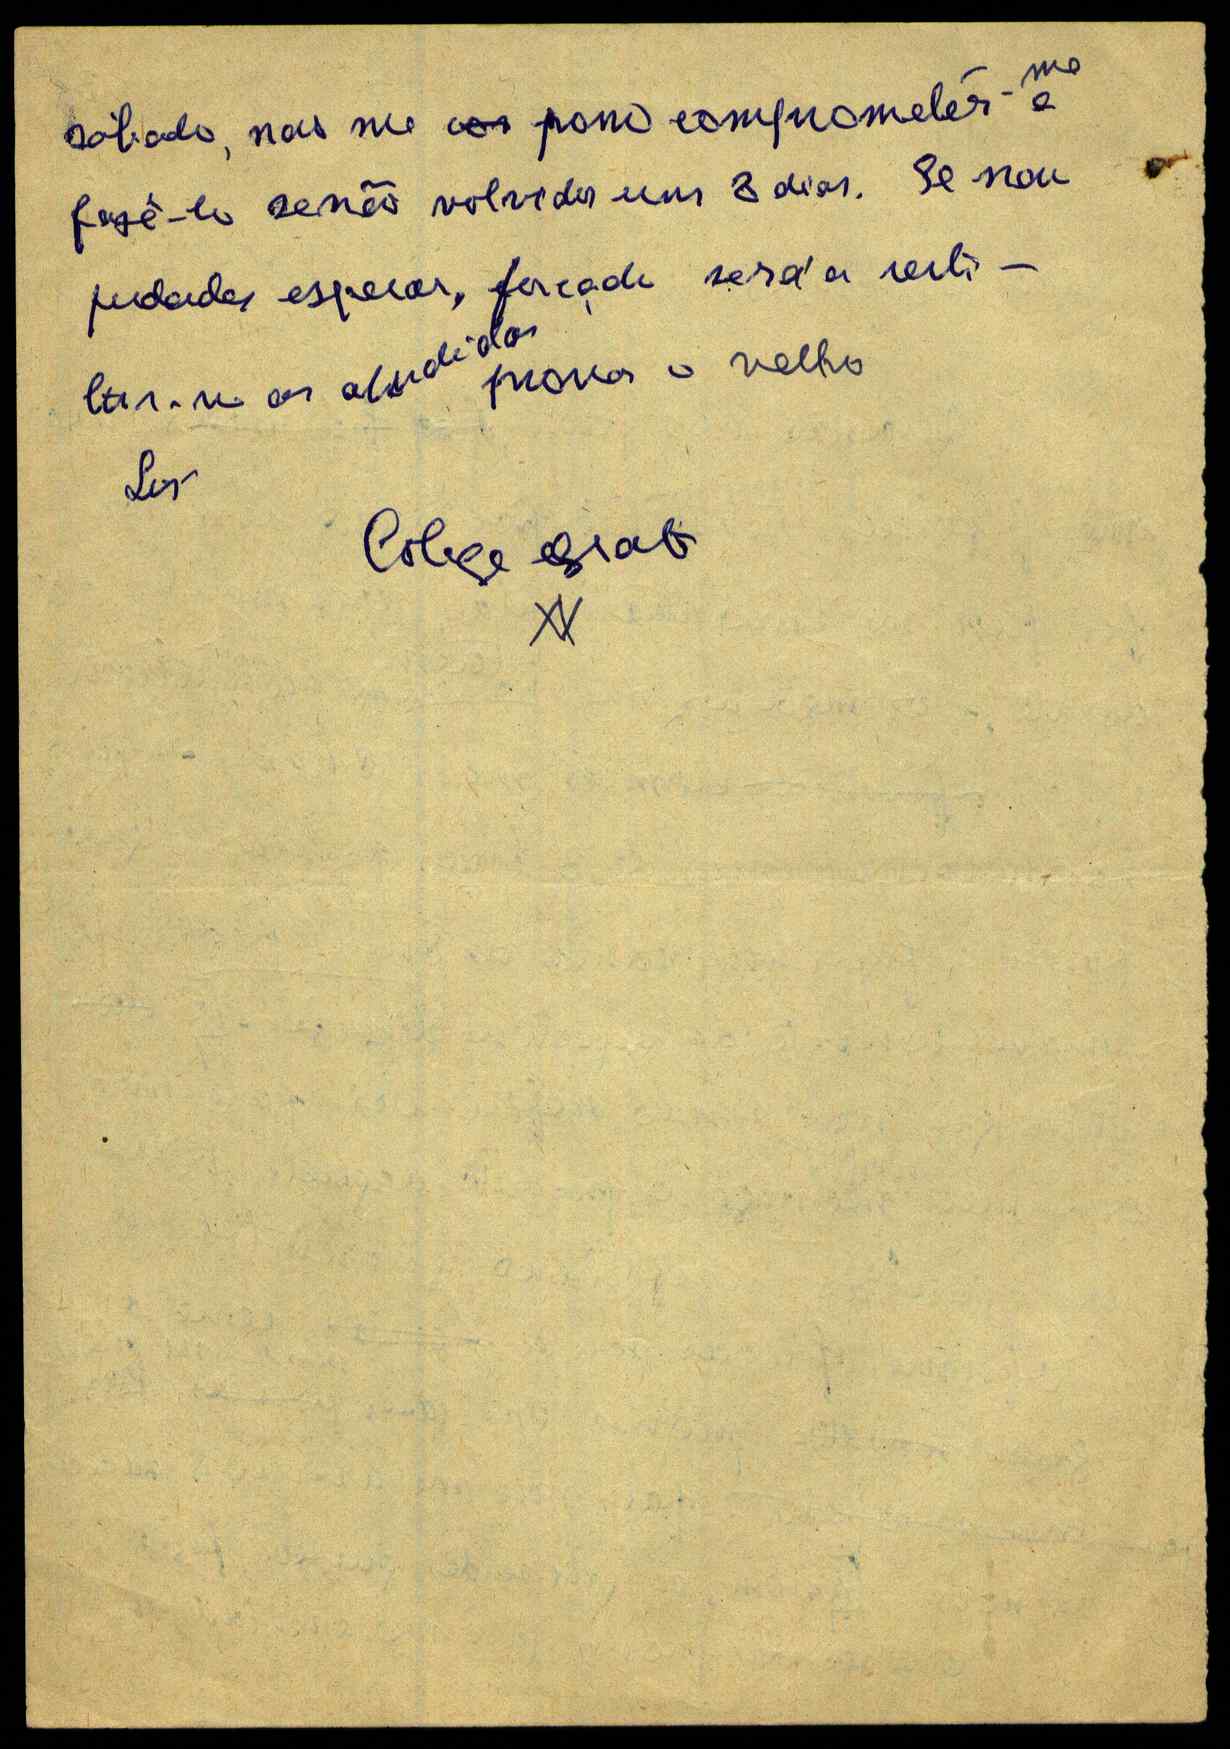 sábado, nao me posso comprometêr-me a
fazê-lo senão volvidos uns 8 dias. Se nao
puderdes esperar, forçado será a resti-
tuir-vo os aludidos provas o velho
Colega grato